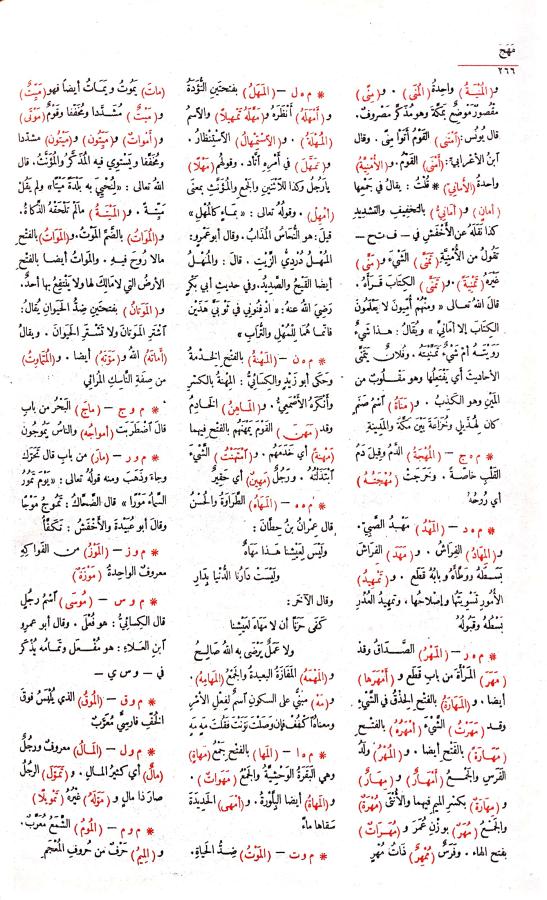 مهج
٢٦٦
و(المُنْيَةُ) واحدةُ (المُنَى) . و(مِنًى)
مقْصُورٌ مَوْضِعٌ بمكّة وهو مُذَكَّرٌ مَصْروفٌ.
قال يُونُس: (امْتَنَى) القَوْمُ أَتَوْا مِنًى . وقال
ابنُ الأعْرابيّ: (أَمْنَى) القَوْمُ . و(الأُمْنِيّةُ)
واحدةُ (الأَمانِيّ) * قُلْتُ : يقالُ في جمعِها
(أَمانٍ) و(أمانِيُّ) بالتخفيف والتشديد
كذا نَقَلهُ عن الأخْفش في – ف ت ح –
تقُول من الأُمْنِيّة (تَمَنَّى) الشَّيْءَ و(مَنَّى)
غَيْرَهُ (تَمْنِيَةً) . و(تَمَنَّى) الكتابَ قَرَأَهُ .
قال اللهُ تعالى « ومِنْهُمْ أُمِّيُّونَ لا يَعْلَمُونَ
الكتابَ إلّا أَمانِيَّ » ويُقالُ : هذا شيءٌ
رَوَيْتَهُ أمْ شَيْءٌ تَمَنَّيْتَهُ . وفلانٌ يَتَمَنَّى
الأحاديثَ أي يَفْتَعِلُها وهو مَقْلوبٌ من
المَيْن وهو الكَذِبُ . و(مَناةُ) اسمُ صَنَمٍ
كان لهُذَيلٍ وخُزاعةَ بين مكّة والمدينة
* م ه ج – (المُهْجَةُ) الدّمُ وقيل دَمُ
القَلْبِ خاصّةً . وخَرَجَتْ (مُهْجَتُهُ)
أي رُوحُهُ
* م ه د – (المَهْدُ) مَهْدُ الصَّبِيّ.
و(المِهادُ) الفِراشُ . و(مَهَدَ) الفِراشَ
بَسَطَهُ ووَطّأهُ وبابُهُ قَطَع . و(تَمْهِيدُ)
الأُمورِ تَسْوِيَتُها وإصْلاحُها . وتمهيدُ العُذْرِ
بَسْطُهُ وقَبُولُهُ
* م ه ر – (المَهْرُ) الصَّداقُ وقد
(مَهَرَ) المَرْأةَ من باب قَطَع و(أَمْهَرَها)
أيضا . و(المَهارَةُ) بالفتح الحِذْقُ في الشَّيْءِ
وقد (مَهَرْتُ) الشَّيْءَ (أَمْهَرُهُ) بالفتح
(مَهارَةً) بالفتح أيضا . و(المُهْرُ) وَلَدُ
الفَرَسِ والجَمْعُ (أَمْهارٌ) و(مِهارٌ)
و(مِهارَةٌ) بكسر الميم فيهما والأُنْثَى (مُهْرَةٌ)
والجمعُ (مُهَرٌ) بوزن عُمَر و(مُهَراتٌ)
بفتح الهاء . وفَرَسٌ (مُمْهِرٌ) ذاتُ مُهْرٍ
* م ه ل – (المَهَلُ) بفتحتين التُّؤَدَةُ
و(أَمْهَلَهُ) أَنْظَرَهُ و(مَهّلَهُ تَمْهِيلًا) والاسمُ
(المُهْلَةُ) . و(الاسْتِمْهالُ) الاسْتِنظارُ .
و(تَمَهَّلَ) في أَمْرِهِ أتّأَدَ . وقولُهم (مَهْلًا)
يارَجُلُ وكذا للاثْنين والجَمْعِ والمُؤَنّثِ بمعنى
(أَمْهِلْ) . وقولُه تعالى : «بماءٍ كالمُهْلِ»
قِيلَ: هو النُّحاسُ المُذابُ. وقال أبو عَمْرو:
المُهْلُ دُرْدِيُّ الزَّيْتِ . قال : والمُهْلُ
أيضا القَيْحُ والصَّدِيدُ. وفي حديث أبي بَكْرٍ
رَضيَ اللهُ عنهُ : «ادْفِنُوني في ثَوْبَيَّ هَذَيْن
فإنّما هُما لِلْمُهْلِ والتُّرابِ»
* م ه ن – (المَهْنَةُ) بالفتح الخِدْمةُ
وحَكى أبو زَيْدٍ والكِسائِيُّ : المِهْنةُ بالكسْرِ
وأَنْكَرَهُ الأَصْمَعِيُّ . و(الماهِنُ) الخادِمُ
وقد (مَهَنَ) القَوْمَ يَمْهَنُهم بالفتح فيهما
(مَهْنَةً) أي خَدَمَهم . و(امْتَهَنْتُ) الشَّيْءَ
ابْتَذَلْتُهُ . ورَجُلٌ (مَهِينٌ) أي حَقِيرٌ
* م ه ه – (المَهاهُ) الطَّراوَةُ والحُسْنُ
قال عِمْرانُ بنُ حِطّانَ :
ولَيْسَ لِعَيْشِنا هَذا مَهاهٌ
ولَيْسَتْ دارُنا الدُّنْيا بِدارِ
وقال الآخَر:
كَفَى حَزَنًا أن لا مَهاهَ لعَيْشِنا
ولا عَمَلٌ يَرْضَى به اللهُ صالِحُ
و(المَهْمَهُ) المَفازَةُ البعيدةُ والجَمْعُ (المَهامِهُ).
و(مَهْ) مَبْنيٌّ على السكون اسمٌ لِفِعْلِ الأمْرِ
ومعناهُ اكْفُفْ فإن وصَلْتَ نَوَّنْتَ فقُلْتَ مَهٍ مَهْ
* م ه ا – (المَها) بالفتح جَمْعُ (مَهاةٍ)
وهي البَقَرةُ الوَحْشِيّةُ والجَمْعُ (مَهَواتٌ) .
و(المَهاةُ) أيضا البِلَّوْرَةُ . و(أَمْهَى) الحَدِيدةَ
سَقاها ماءً
* م و ت – (المَوْتُ) ضِدُّ الحَياةِ.
(ماتَ) يَمُوتُ ويَماتُ أيضا فهو(مَيِّتٌ)
و(مَيْتٌ) مُشَدَّدا ومُخَفَّفا وقَوْمٌ (مَوْتَى)
و(أمواتٌ) و(مَيِّتُون) و(مَيْتُون) مشدّدا
ومُخَفَّفا ويَسْتوي فيه المُذَكّرُ والمُؤَنّثُ. قال
اللهُ تعالى : «لِنُحْيِيَ به بَلْدَةً مَيْتًا» ولم يَقُلْ
مَيْتةً . و(المَيْتَةُ) ما لم تَلْحَقْهُ الذَّكاةُ.
و(المُواتُ) بالضّم المَوْتُ. و(المَواتُ) بالفتح
مالا رُوحَ فيه . والمَواتُ أيضا بالفتح
الأرضُ التي لا مالِكَ لها ولا يَنْتَفِعُ بها أحدٌ.
و(المَوَتانُ) بفتحتين ضِدُّ الحَيَوانِ يُقالُ:
اشْتَرِ المَوَتانَ ولا تَشْتَرِ الحَيَوانَ . ويقالُ
(أَماتَهُ) اللهُ و(مَوَّتَهُ) أيضا . و(المُتَماوِتُ)
من صِفَةِ النّاسِكِ المُرائي
* م و ج – (ماجَ) البَحْرُ من باب
قال اضْطَرَبَتْ (أمواجُه) والناسُ يَمُوجُون
* م و ر – (مارَ) من باب قال تَحَرَّكَ
وجاء وذَهَبَ ومنه قولُه تعالى : «يَوْمَ تَمُورُ
السَّماءُ مَوْرًا» قال الضَّحّاكُ : تَمُوجُ مَوْجًا
وقال أبو عُبَيدةَ والأخْفَشُ : تَكَفَّأُ
* م و ز – (المَوْزُ) من الفَواكِهِ
معروفٌ الواحِدةُ (مَوْزَةٌ)
* م و س – (مُوسَى) اسْمُ رجُلٍ
قال الكِسائيُّ : هو فُعْلَى . وقال أبو عمرِو
ابن العَلاءِ: هو مُفْعَل وتمامُه يُذْكَر
في – و س ي –
* م و ق – (المُوقُ) الذي يُلْبَسُ فوقَ
الخُفِّ فارِسيٌّ مُعَرَّبٌ
* م و ل – (المالُ) معروفٌ ورجُلٌ
(مالٌ) أي كثيرُ المالِ . و(تَمَوَّلَ) الرَّجُلُ
صار ذا مالٍ و(مَوَّلَهُ) غَيْرُهُ (تَمْوِيلًا)
* م و م – (المُومُ) الشَّمَعُ مُعَرّبٌ.
و(المِيمُ) حَرْفٌ من حُرُوفِ المُعْجَم